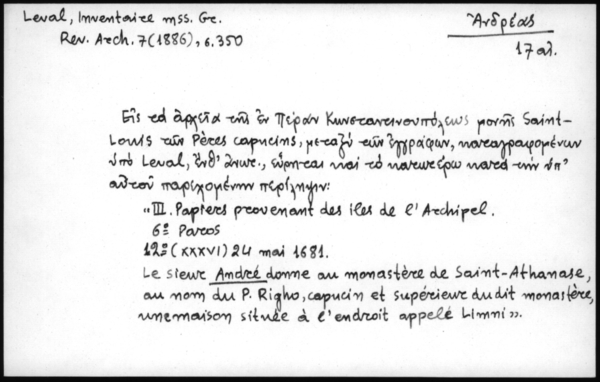 Leval, Inventaire mss. Gr.
Rev. Arch. 7 (1886), σ. 350
Ἀνδρέας
17 αἰ.
Εἰς τὰ ἀρχεῖα τῆς ἐν Πέραν Κωνσταντινουπόλεως μονῆς Saint-
Louis τῶν Pères capucins, μεταξὺ τῶν ἐγγράφων, καταγραφομένων
ὑπὸ Leval, ἔνθ' ἀνωτ., εὕρηται καὶ τὸ κατωτέρω κατὰ τὴν ὑπ'
αὐτοῦ παρεχομένην περίληψιν:
«III. Papiers provenant des iles de l'Archipel.
6º Paros
12º (XXXVI) 24 mai 1681.
Le sieur André donne au monastère de Saint-Athanase,
au nom du P. Righo, capucin et supérieur du dit monastère,
une maison située à l'endroit appelé Limni».